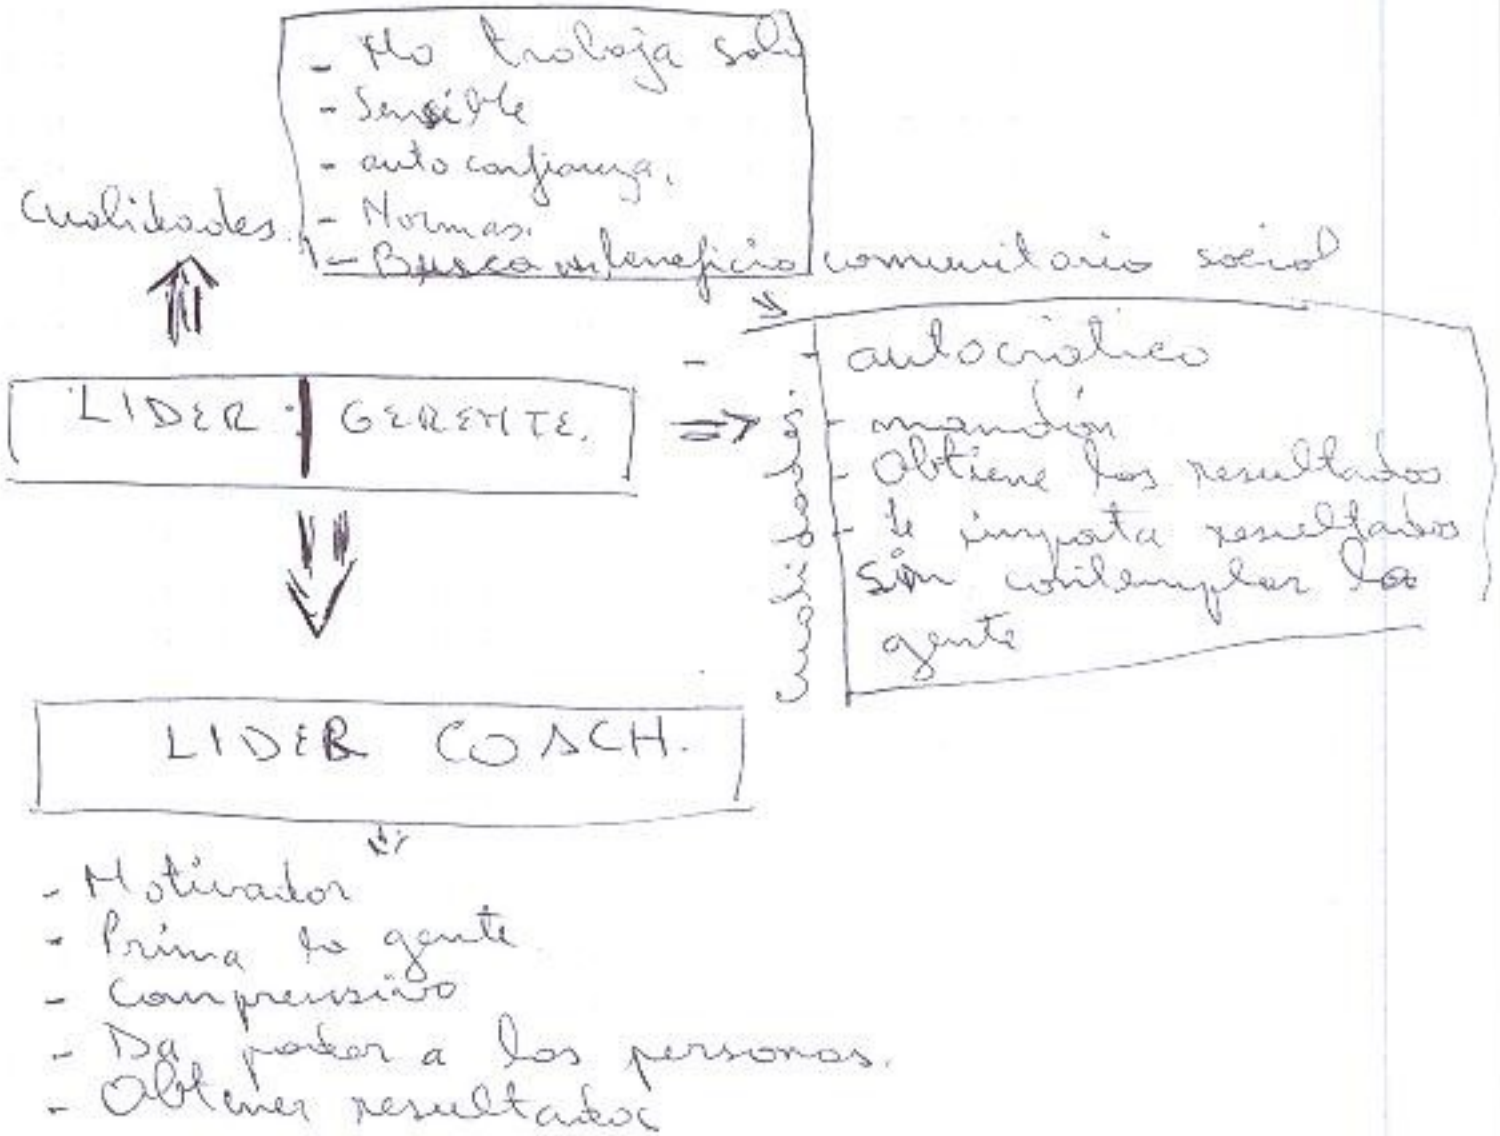 - No trabaja solo
- Sensible
- autoconfianza.
- Normas.
- Busca un beneficio comunitario social
Cualidades.
LIDER GERENTE.
cualidades
- autocrático
- mandón
- Obtiene los resultados
- le importa resultados
sin contemplar la
gente
LIDER COACH.
- Motivador
- Prima la gente
- Comprensivo
- Da poder a las personas.
- Obtener resultados